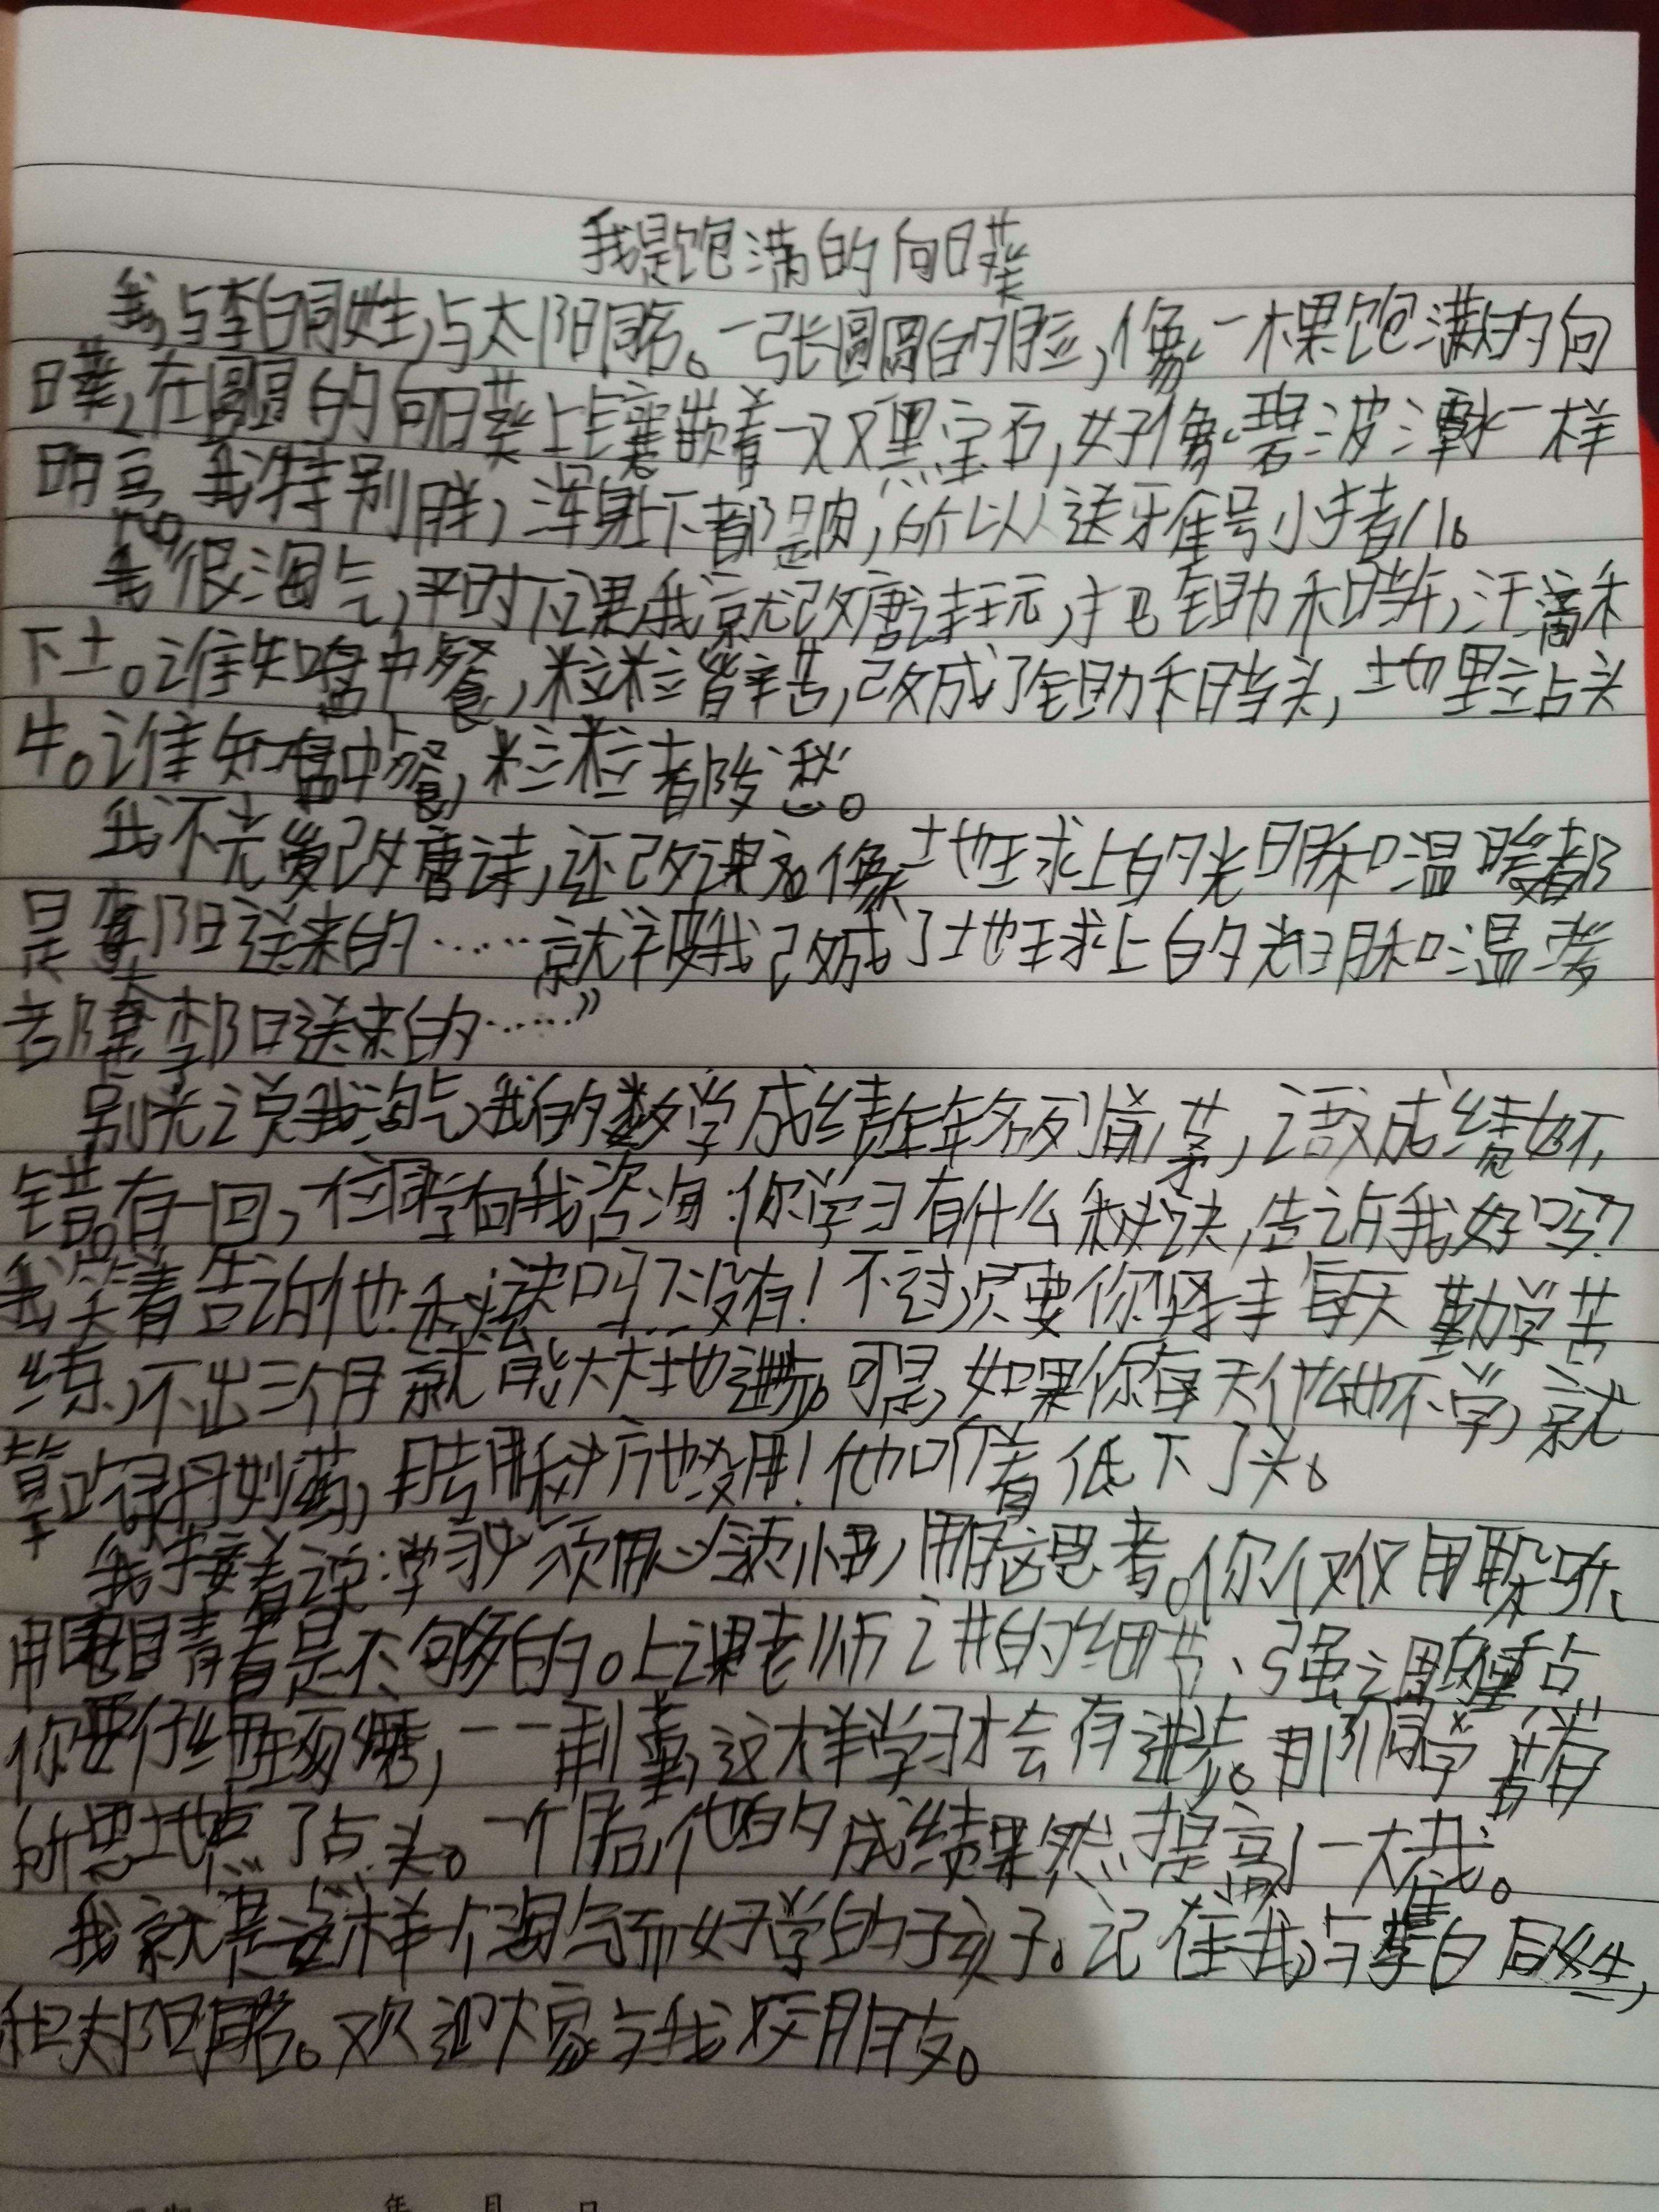 我是饱满的向日葵
我与李白同姓,与太阳同名。一张圆圆的脸,像一棵饱满的向
日葵,在圆圆的向日葵上镶嵌着一双黑宝石,好像碧波潭水一样
明亮。我特别胖,浑身上下都是肉,所以人送牙雀号小猪儿。
我很淘气,平时下课我就改唐诗玩,把锄禾日当午,汗滴禾
下土。谁知盘中餐,粒粒皆辛苦,改成了锄禾日当头,地里站头
牛。谁知盘中餐,粒粒都发愁。
我不光爱改唐诗,还改课文。像地球上的光明和温暖都
是太阳送来的……就被我改成了地球上的光明和温暖
都是李阳送来的……”
别光说我淘气,我的数学成绩年年名列前茅,语文成绩好不
错。有一回,一位同学向我咨询:你学习有什么秘诀,告诉我好吗?
我笑着告诉他:秘诀吗?没有!不过只要你坚持每天勤学苦
练,不出三个月就能大大地进步。可是,如果你每天什么也不学,就
算吃灵丹妙药,用秘方也没用!他听着低下了头。
我接着说:学习必须用心领悟,用脑思考。你仅仅用耳朵听、
用眼睛看是不够的。上课老师讲的细节、强调的重点
你要仔细琢磨,一一掌,这样学习才会有进步。那同学若有
所思地点了点头。一个月后,他的成绩果然提高了一大截。
我就是这样一个淘气而好学的孩子。记住我,与李白同姓,
和太阳同名。欢迎大家与我交朋友。
年 月 日